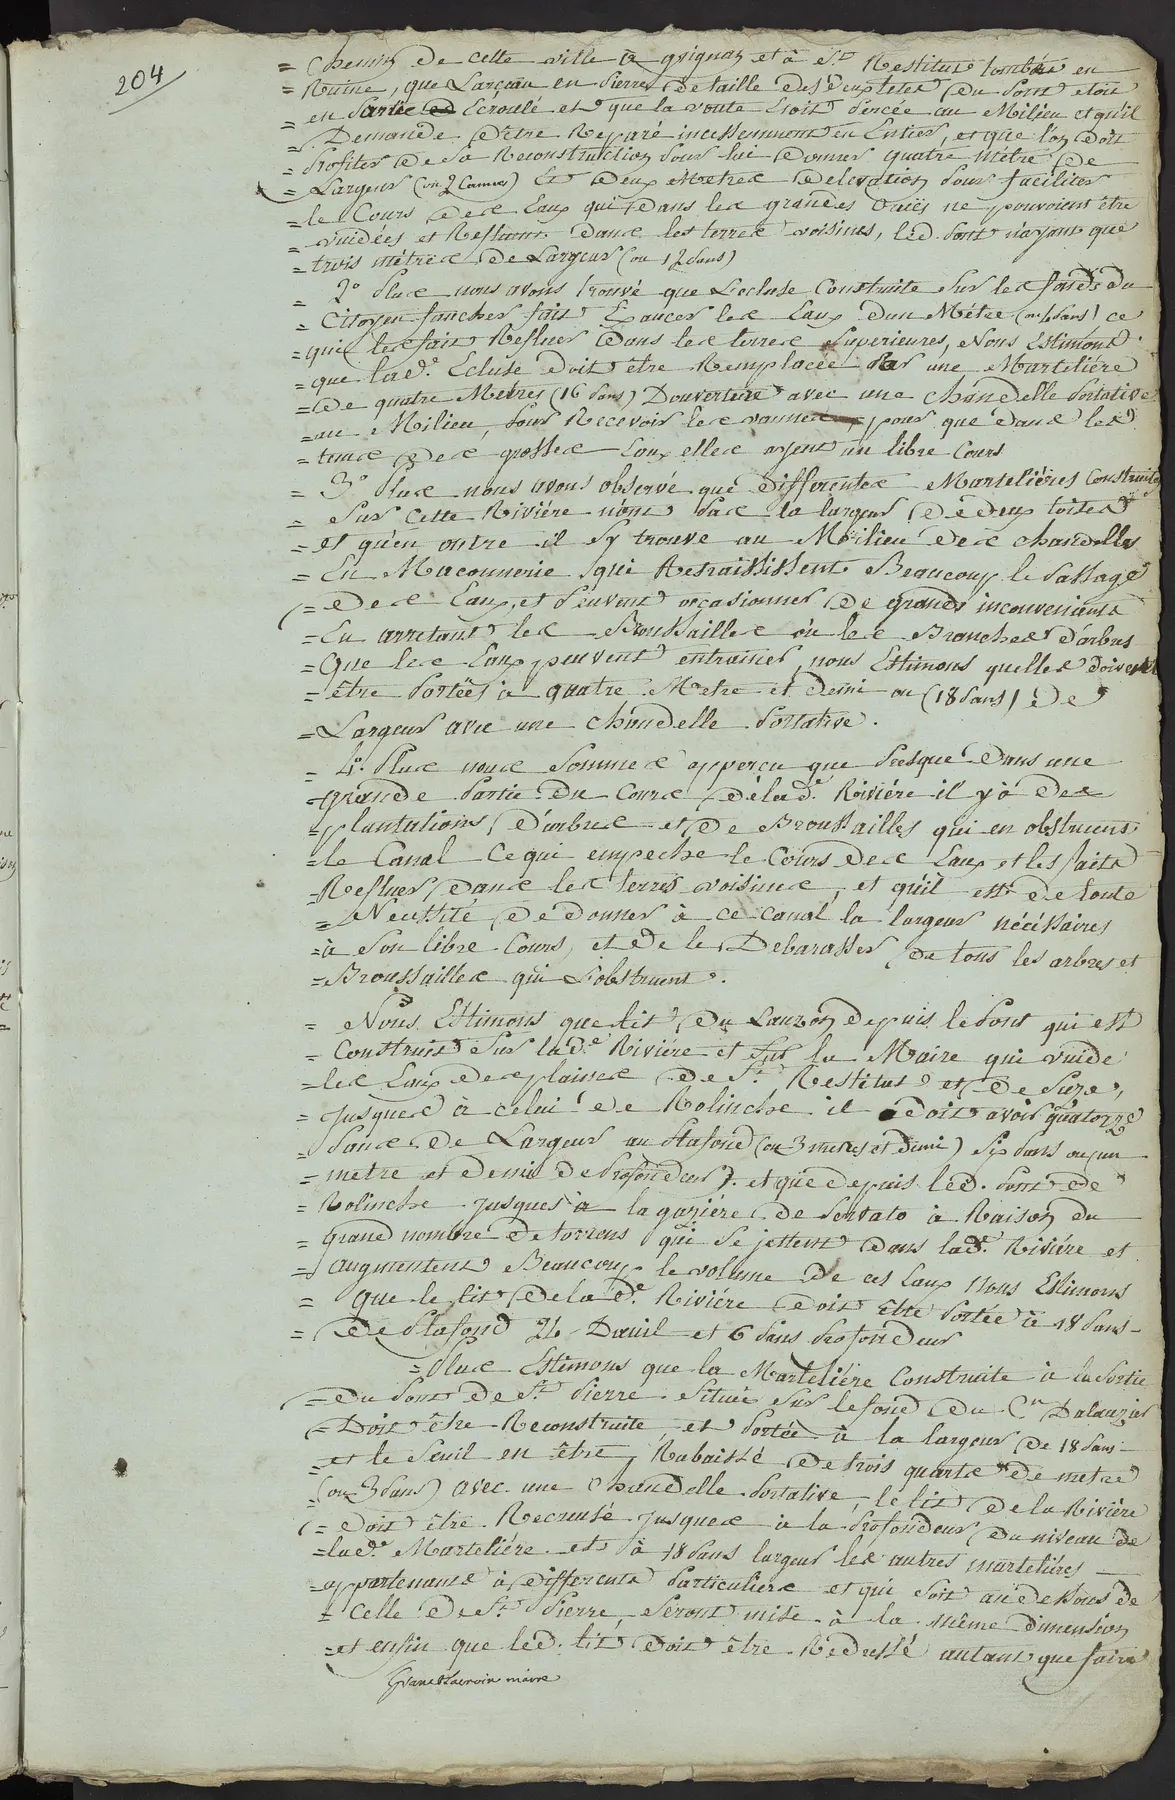 204
= Chemin de cette ville à grignan et à St. Restitut tombée en
= Ruine, que Larceau en Pierre de taille des deux tetes du Pont etoit
= en Partie Ecroulé et que la voute Etoit Percée au Milieu et qu'il
= Demande d'être Reparé incessemment en Entier, et que l'on doit
Profiter de sa Reconstruction Pour lui donner quatre métre de
= Largeur (ou 2 Cannes) Et deux Metres délevation Pour faciliter
= le Cours des Eaux qui dans les grandes Crües ne pouvoient être
= vuidées et Refluent dans les terres voisines, led. Pont n'ayant que
= trois métres de Largeur (ou 12 Pans)
= 2° Plus nous avons trouvé que Lecluse Construite Sur les fonds du
= Citoyen faucher fait Exaucer les Eaux d'un Métre (ou 4 Pans) ce
= qui les fait Refluer dans les terres Superieures, Nous Estimons
= que lade. Ecluse doit être Remplacée Par une Martelière
= de quatre Metres (16 Pans) Douverture avec une chandelle Portative
= au Milieu, Pour Recevoir les vannes, pour que dans les
= tems des grosses Eaux elles ayent un libre Cours
= 3° Plus nous avons observé que differentes Martelières Construites
= Sur Cette Rivière n'ont Pas la largeur de deux toises
= et qu'en outre il s'y trouve au Milieu des chandelles
= En Maconnerie qui Retraississent Beaucoup le Passage
= des Eaux, et Peuvent occasionner de grands inconvenients
= En arretant les Broussailles ou les Branches d'arbres
= Que les Eaux peuvent entrainer, nous Estimons quelles doivent
= être Portées à quatre Metre et demi ou (18 Pans) de
= Largeur avec une chandelle Portative.
= 4° Plus nous Sommes apperçu que Presque dans une
= grande Partie du Cours de lade. Rivière il y à des
= plantations d'arbres et de Broussailles qui en obstruent
= le Canal Ce qui empeche le Cours des Eaux et les faits
Refluer dans les terres voisines, et qu'il est de toute
= Necessité de donner à ce canal la largeur nécéssaires
= à Son libre Cours, et de le Debarasser de tous les arbres et
= Broussailles qui L'obstruent.
= Nous Estimons que lit du Lauzon depuis le Pont qui est
= Construit Sur lade. Rivière et Sur la Maire qui vuide
= les Eaux des plaines de St. Restitut et de Suze,
= Jusques à celui de Rolinche il doit avoir quatorze
Pans de Largeur au Plafond (ou 3 metres et demi) Six Pans ou un
= metre et demi de Profondeur). et que depuis led. Pont de
= Rolinche Jusques à la gaziére de Servato à Raison du
= Grand nombre de torrens qui Se jettent dans lade. Rivière et
= augmentent Beaucoup le volume de ces Eaux Nous Estimons
= que le lit de lade. Rivière doit Etre Portée à 18 Pans
= de Plafond 24 Dœuil et 6 Pans Profondeur
= Plus Estimons que la Martelière Construite à la Sortie
= du Pont de St. Pierre Située Sur le fond du Cen Dalauzier
= Doit être Reconstruite, et Portée à la largeur de 18 Pans
= et le Seuil en être Rabaissé de trois quarts de metre
= (ou 3 Pans) avec une Chandelle Portative, le lit de la Rivière
= doit être Recreusé Jusques à la Profondeur du niveau de
= lade. Martelière et à 18 Pans largeur les autres martelières
= appartenants à differents Particuliers et qui Sont au dessous de
= Celle de St. Pierre, Seront mise à la même dimension
= et enfin que led. lit doit être Redressé autant que faire
maire